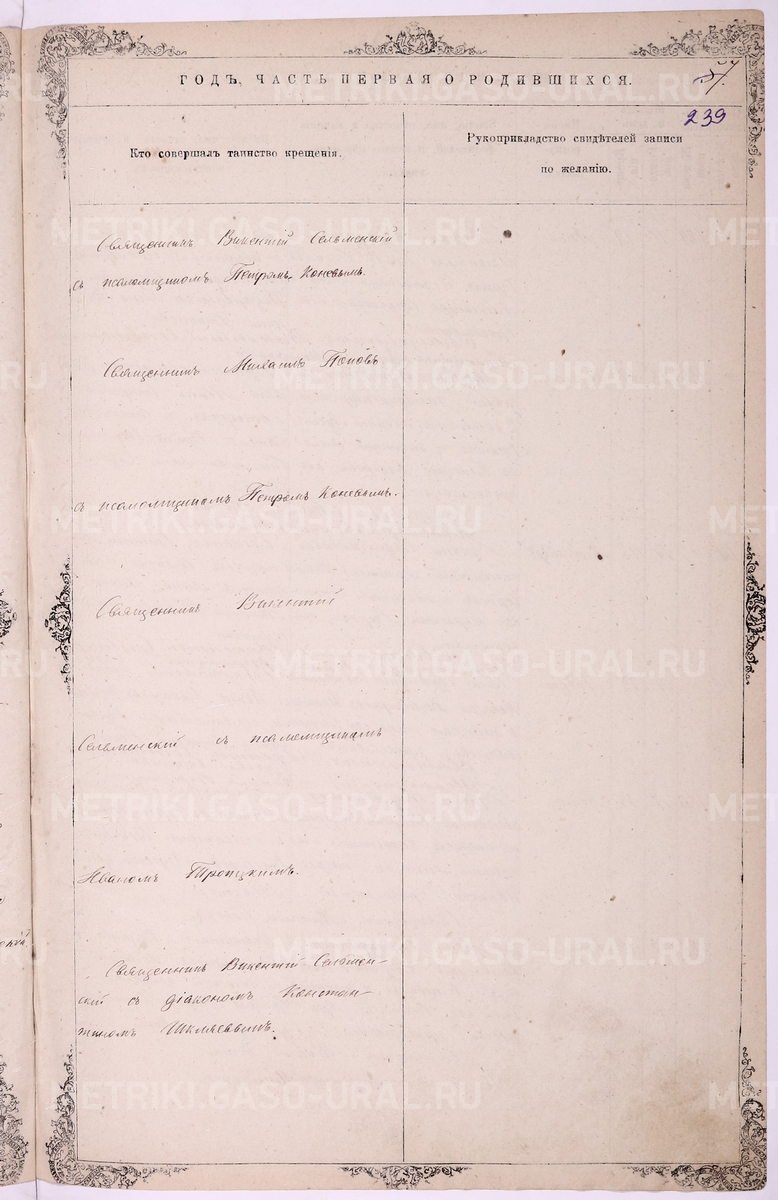 ГОДЪ, ЧАСТЬ ПЕРВАЯ О РОДИВШИХСЯ.
57.
239
Кто совершалъ таинство крещенія.
Рукоприкладство свидѣтелей записи
по желанію.
Священникъ Викентій Сельменскій
съ псаломщикомъ Петромъ Коневымъ.
Священникъ Михаилъ Поповъ
съ псаломщикомъ Петромъ Коневымъ.
Священникъ Викентій
Сельменскій съ псаломщикомъ
Иваномъ Троицкимъ.
Священникъ Викентій Сельмен-
скій съ діакономъ Констан-
тиномъ
METRIKI.GASO-URAL.RU